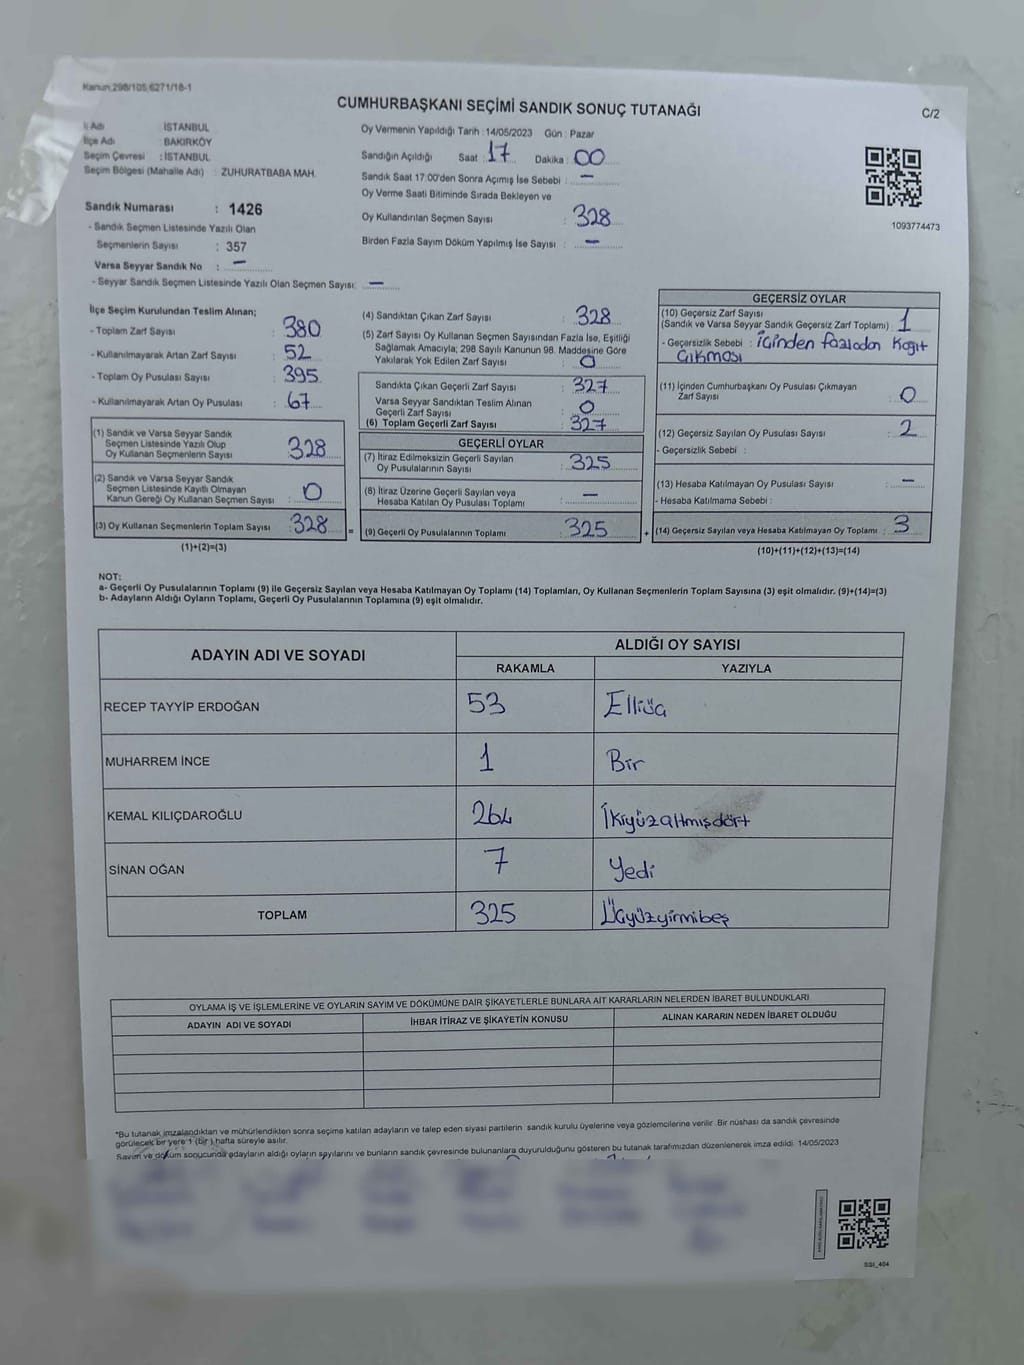 Kanun:298/105,6271/18-1
CUMHURBAŞKANI SEÇİMİ SANDIK SONUÇ TUTANAĞI
C/2
İl Adı : İSTANBUL
İlçe Adı : BAKIRKÖY
Seçim Çevresi : İSTANBUL
Seçim Bölgesi (Mahalle Adı) : ZUHURATBABA MAH.
Sandık Numarası : 1426
- Sandık Seçmen Listesinde Yazılı Olan
Seçmenlerin Sayısı : 357
Varsa Seyyar Sandık No : —
- Seyyar Sandık Seçmen Listesinde Yazılı Olan Seçmen Sayısı: —
Oy Vermenin Yapıldığı Tarih :14/05/2023 Gün : Pazar
Sandığın Açıldığı Saat : 17 Dakika : 00
Sandık Saat 17:00'den Sonra Açımış İse Sebebi : —
Oy Verme Saati Bitiminde Sırada Bekleyen ve
Oy Kullandırılan Seçmen Sayısı : 328
Birden Fazla Sayım Döküm Yapılmış İse Sayısı : —
1093774473
İlçe Seçim Kurulundan Teslim Alınan;
- Toplam Zarf Sayısı : 380
- Kullanılmayarak Artan Zarf Sayısı : 52
- Toplam Oy Pusulası Sayısı : 395
- Kullanılmayarak Artan Oy Pusulası : 67
(1) Sandık ve Varsa Seyyar Sandık
Seçmen Listesinde Yazılı Olup
Oy Kullanan Seçmenlerin Sayısı : 328
(2) Sandık ve Varsa Seyyar Sandık
Seçmen Listesinde Kayıtlı Olmayan
Kanun Gereği Oy Kullanan Seçmen Sayısı : 0
(3) Oy Kullanan Seçmenlerin Toplam Sayısı : 328 =
(1)+(2)=(3)
(4) Sandıktan Çıkan Zarf Sayısı : 328
(5) Zarf Sayısı Oy Kullanan Seçmen Sayısından Fazla İse, Eşitliği
Sağlamak Amacıyla; 298 Sayılı Kanunun 98. Maddesine Göre
Yakılarak Yok Edilen Zarf Sayısı : 0
Sandıkta Çıkan Geçerli Zarf Sayısı : 327
Varsa Seyyar Sandıktan Teslim Alınan
Geçerli Zarf Sayısı : 0
(6) Toplam Geçerli Zarf Sayısı : 327
GEÇERLİ OYLAR
(7) İtiraz Edilmeksizin Geçerli Sayılan
Oy Pusulalarının Sayısı : 325
(8) İtiraz Üzerine Geçerli Sayılan veya
Hesaba Katılan Oy Pusulası Toplamı : —
(9) Geçerli Oy Pusulalarının Toplamı : 325 +
GEÇERSİZ OYLAR
(10) Geçersiz Zarf Sayısı
(Sandık ve Varsa Seyyar Sandık Geçersiz Zarf Toplamı) : 1
- Geçersizlik Sebebi : içinden fazladan kağıt
çıkması
(11) İçinden Cumhurbaşkanı Oy Pusulası Çıkmayan
Zarf Sayısı : 0
(12) Geçersiz Sayılan Oy Pusulası Sayısı : 2
- Geçersizlik Sebebi :
(13) Hesaba Katılmayan Oy Pusulası Sayısı : —
- Hesaba Katılmama Sebebi :
(14) Geçersiz Sayılan veya Hesaba Katılmayan Oy Toplamı : 3
(10)+(11)+(12)+(13)=(14)
NOT:
a- Geçerli Oy Pusulalarının Toplamı (9) ile Geçersiz Sayılan veya Hesaba Katılmayan Oy Toplamı (14) Toplamları, Oy Kullanan Seçmenlerin Toplam Sayısına (3) eşit olmalıdır. (9)+(14)=(3)
b- Adayların Aldığı Oyların Toplamı, Geçerli Oy Pusulalarının Toplamına (9) eşit olmalıdır.
ADAYIN ADI VE SOYADI
ALDIĞI OY SAYISI
RAKAMLA YAZIYLA
RECEP TAYYİP ERDOĞAN 53 Elliüç
MUHARREM İNCE 1 Bir
KEMAL KILIÇDAROĞLU 264 İkiyüzaltmışdört
SİNAN OĞAN 7 Yedi
TOPLAM 325 Üçyüzyirmibeş
OYLAMA İŞ VE İŞLEMLERİNE VE OYLARIN SAYIM VE DÖKÜMÜNE DAİR ŞİKAYETLERLE BUNLARA AİT KARARLARIN NELERDEN İBARET BULUNDUKLARI
ADAYIN ADI VE SOYADI İHBAR İTİRAZ VE ŞİKAYETİN KONUSU ALINAN KARARIN NEDEN İBARET OLDUĞU
*Bu tutanak imzalandıktan ve mühürlendikten sonra seçime katılan adayların ve talep eden siyasi partilerin sandık kurulu üyelerine veya gözlemcilerine verilir. Bir nüshası da sandık çevresinde
görülecek bir yere 1 (bir ) hafta süreyle asılır.
Sayım ve döküm sonucunda adayların aldığı oyların sayılarını ve bunların sandık çevresinde bulunanlara duyurulduğunu gösteren bu tutanak tarafımızdan düzenlenerek imza edildi. 14/05/2023
SSI_404